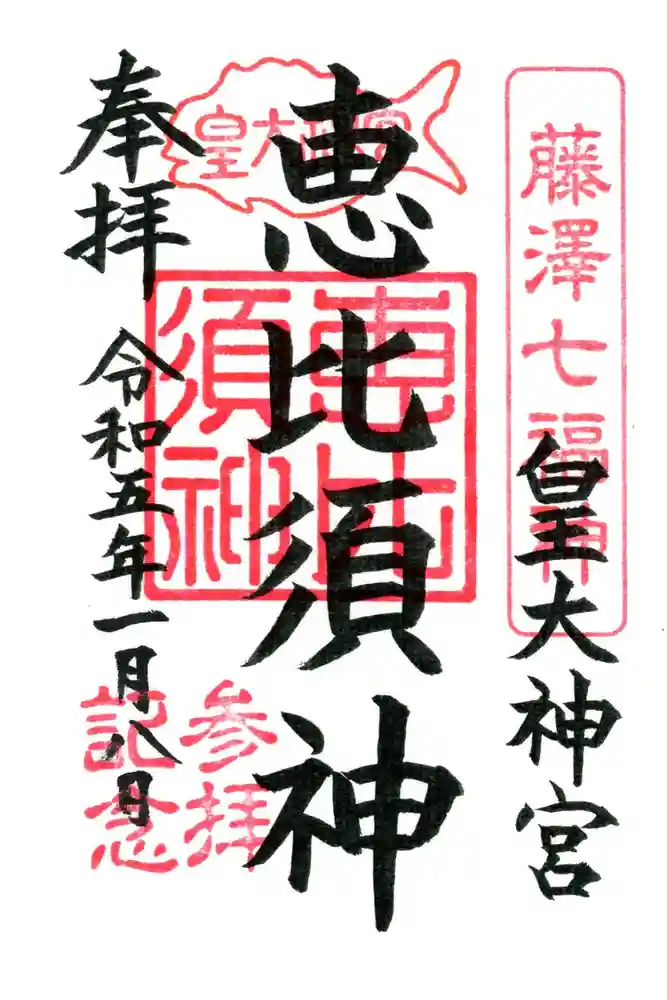 藤澤七福神
皇大神宮
皇大神宮
恵比須神
恵比須神
参拝
記念
奉拝
令和五年一月八日